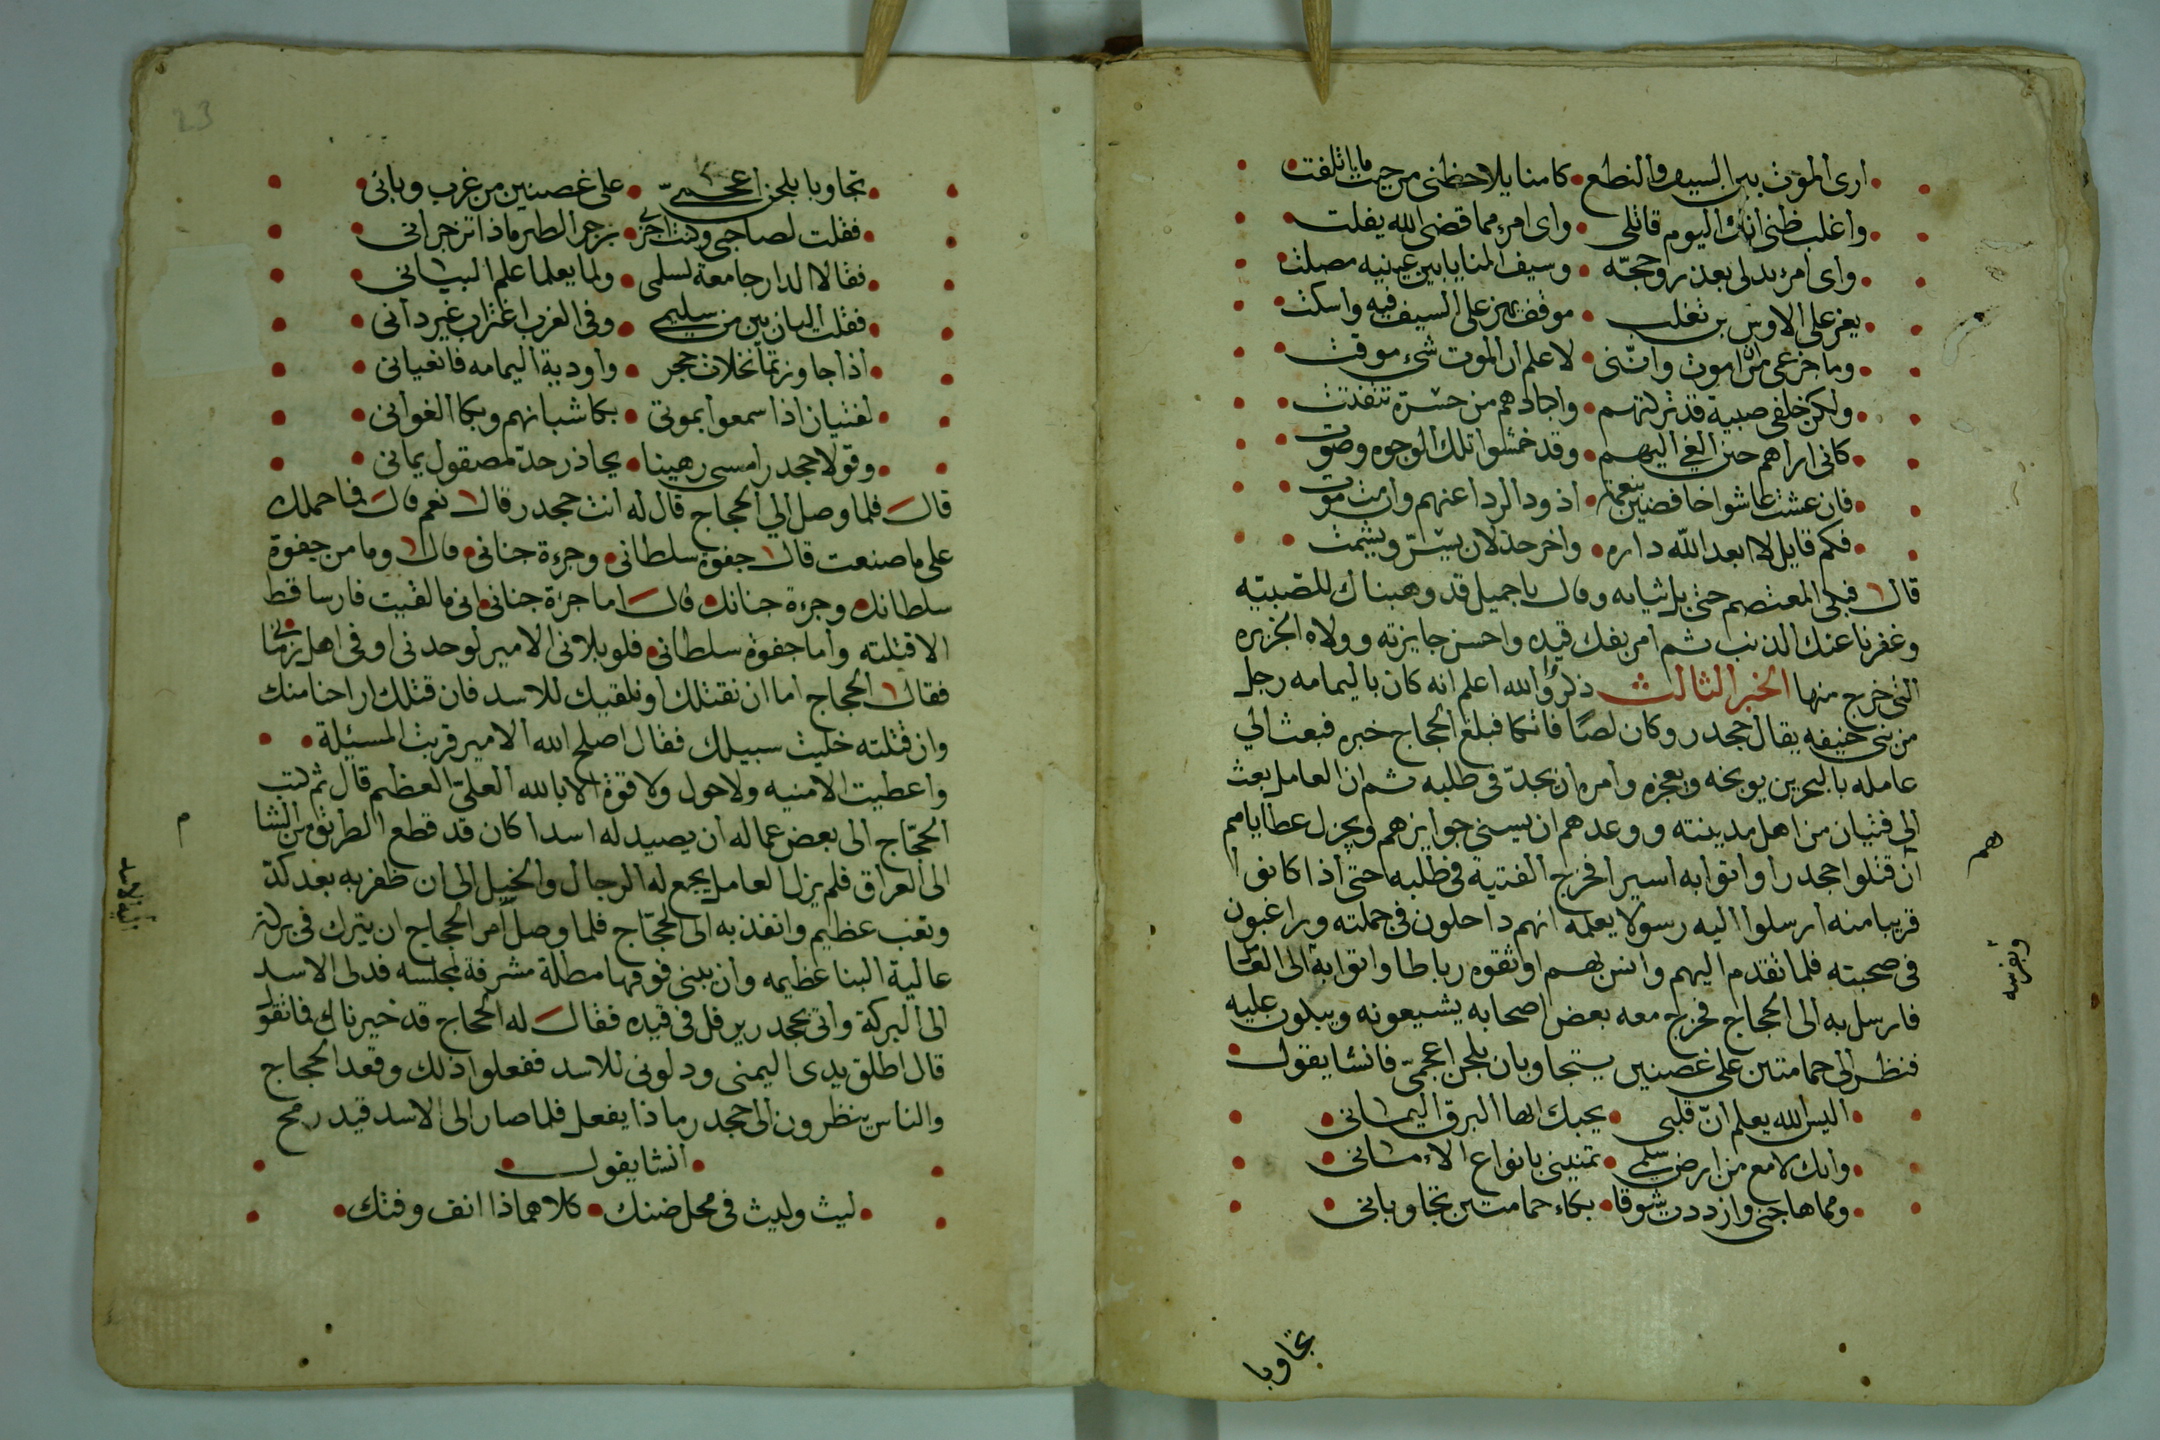 ارى الموت بين السيف والنطع كامنا يلاحظني من حيث ما اتلفت
وأغلب ظني أنك اليوم قاتلي واي امرء مما قضى الله يفلت
واي امرء يدلي بعذر وحجّه وسيف المنايا بين عينيه مصلت
يعز على الاوس بن تغلب موقف يهز علي السيف فيه واسكت
وما جزعي من ان اموت وانّني لاعلم ان الموت شيء موقت
ولكن خلفي صبية قد تركتهم واجالهم من حسرة تتفتت
كاني اراهم حين انعي اليهم وقد خمشوا تلك الوجوه وصوت
فان عشت عاشوا خافضين بنعمة اذود الردا عنهم وان مت موت
فكم قايل لا ابعد الله داره واخر جذلان يسرّ ويشمت
قال فبكى المعتصم حتى بل ثيابه وقال يا جميل قد وهبناك للصبيّه
وغفرنا عنك الذنب ثم امر بفك قيده واحسن جايزته وولاه الجزيره
التي خرج منها الخبر الثالث ذكروا والله اعلم انه كان باليمامه رجل
من بني حنيفه يقال جحدر وكان لصًا فاتكا فبلغ الحجاج خبره فبعث الي
عامله بالبحرين يوبخه ويعجزه وأمره أن يجدّ في طلبه ثم ان العامل بعث
الى فتيان من اهل مدينته ووعدهم ان يسني جوايزهم ويجزل عطاياهم
ان قتلوا جحدرا وأتوا به اسيرا فخرج الفتية في طلبه حتى أذا كانوا
قريبا منه ارسلوا اليه رسولا يعلمه انهم داخلون في جملته وراغبون
في صحبته فلما تقدم اليهم وانس بهم اوثقوه رباطا واتوا به الى العامل
فارسل به الى الحجاج فخرج معه بعض اصحابه يشيعونه ويبكون عليه
فنظر الى حمامتين على غصنين يتجاوبان بلحن اعجميّ فانشا يقول
اليس الله يعلم انّ قلبي يحبك ايها البرق اليماني
وانك لامع من ارض سلمي تمنيني بانواع الاماني
ومما هاجني وازددت شوقا بكاء حمامتين تجاوباني
تجاوبا
تجاوبا بلحن اعجميّ على غصنين من غرب وباني
فقلت لصاحبي وكنت احزر بزجر الطير ماذا تزجراني
فقالا الدار جامعة لسلمى ولما يعلما علم البياني
فقلت البان بين من سليمي وفي الغرب اغتراب غير داني
أذا جاوزتما نخلات حجر وأودية اليمامه فانعياني
لفتيان اذا سمعوا بموتي بكا شبانهم وبكا الغواني
وقولا جحدر امسى رهينا يحاذر حدّ مصقول يماني
قال فلما وصل الي الحجاج قال له انت جحدر قال نعم قال فما حملك
على ما صنعت قال جفوة سلطاني وجرءة جناني قال وما من جفوة
سلطانك وجرءة جنانك قال اما جرءة جناني اني ما لقيت فارسا قط
الا قتلته وأما جفوة سلطاني فلو بلاني الامير لوجدني اوفى اهل زماني
فقال الحجاج اما ان نقتلك او نلقيك للاسد فان قتلك اراحنا منك
وان قتلته خليت سبيلك فقال اصلح الله الامير قربت المسيلة
وأعطيت الامنيه ولا حول ولا قوة الا بالله العلي العظيم قال ثم كتب
الحجّاج الى بعض عماله ان يصيد له اسدا كان قد قطع الطريق من الشام
الى العراق فلم يزل العامل يجمع له الرجال والخيل الى ان ظفر به بعد كدّ
وتعب عظيم وانفذ به الى الحجّاج فلما وصل أمر الحجاج ان يترك في بركة
عالية البنا عظيمه وأن يبنى فوقها مطلة مشرفة لمجلسه فدلى الاسد
الى البركة واتى بجحدر يرفل في قيده فقال له الحجاج قد خيرناك
قال اطلق يدي اليمنى ودلوني للاسد ففعلوا ذلك وقعد الحجاج
والناس ينظرون الى جحدر ماذا يفعل فلما صار الى الاسد قيد رمح
أنشا يقول
ليث وليث في محل ضنك كلاهما ذا انف وفتك